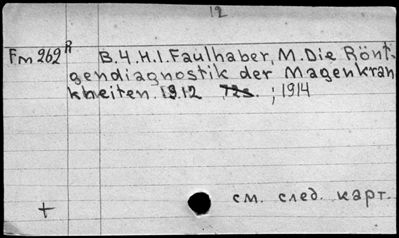 12
Fm 262 я B.4.H.1. Faulhaber, M. Die Rönt-
gendiagnostik der Magenkran
kheiten. 1912 72s. ; 1914
+ см. след. карт.